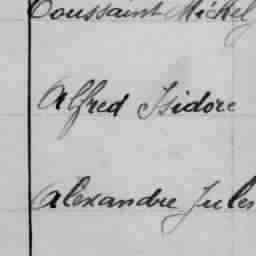 Toussaint Michel
Alfred Isidore
Alexandre Jules